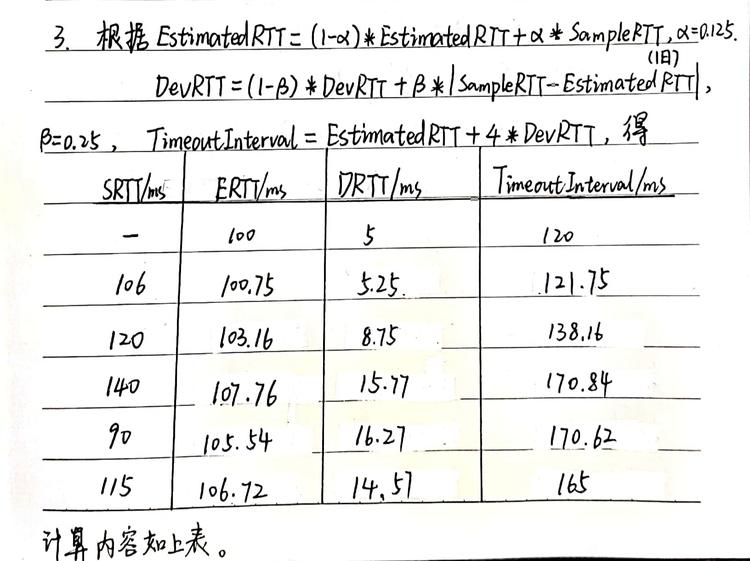 3. 根据 EstimatedRTT=(1-α)*EstimatedRTT+α*SampleRTT, α=0.125.
(旧)
DevRTT=(1-β)*DevRTT+β*|SampleRTT-EstimatedRTT|,
β=0.25, TimeoutInterval=EstimatedRTT+4*DevRTT, 得
SRTT/ms ERTT/ms DRTT/ms TimeoutInterval/ms
- 100 5 120
106 100.75 5.25 121.75
120 103.16 8.75 138.16
140 107.76 15.77 170.84
90 105.54 16.27 170.62
115 106.72 14.57 165
计算内容如上表。